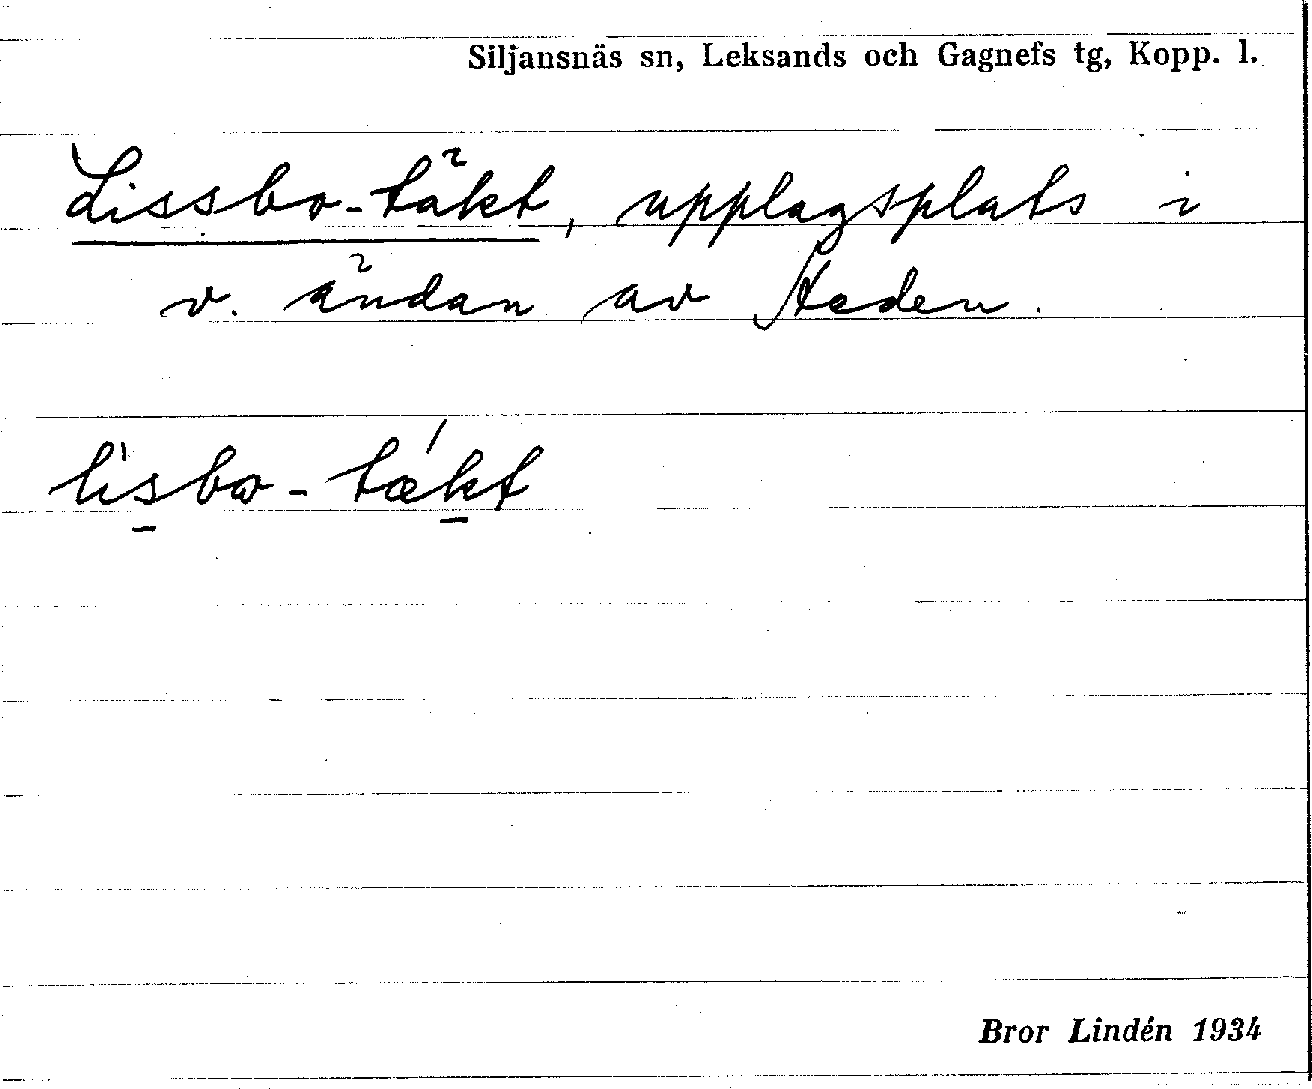 Siljansnäs sn, Leksands och Gagnefs tg, Kopp. l.
Lissbo-täkt, upplagsplats i
v. ändan av Heden.
lìsbo-tækt́
Bror Lindén 1934